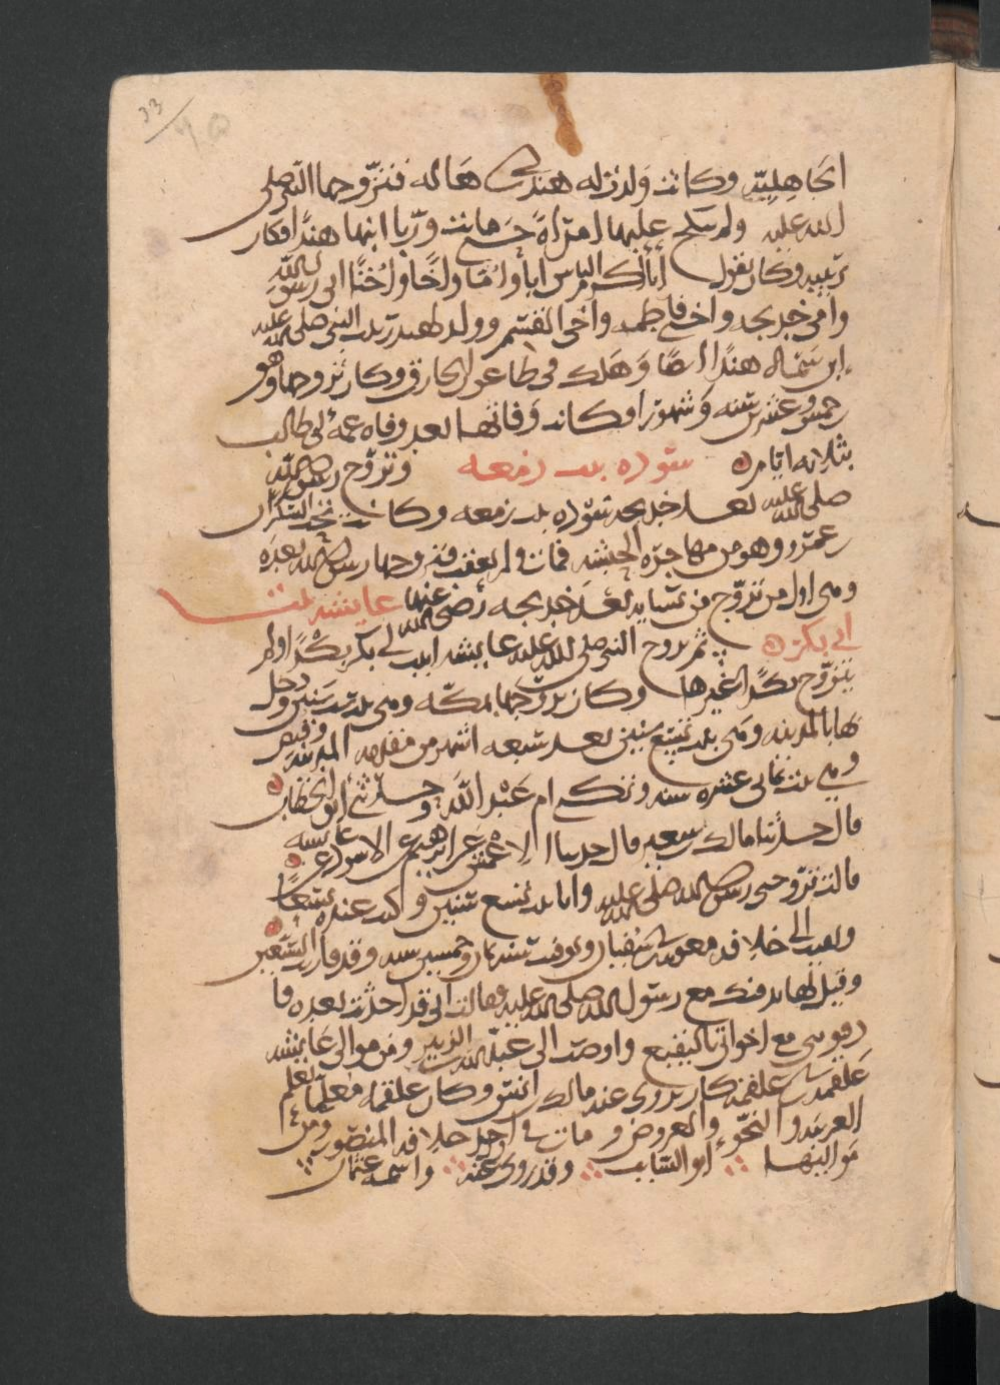 33
الجاهلية وكانت ولدت له هند بن هاله فتزوجها النبي صلى
الله عليه ولم ينكح عليها امرأة حتى ماتت وربا ابنها هندا وكان
ربيبه وكان يقول أنا أكرم الناس أبا وأما وأخا وأختا أبي رسول الله
وأمي خديجه وأختي فاطمه وأخي القسم وولد لهند ربيب النبي صلى الله عليه
ابن سماه هندا ايضا وهلك في طاعون الجارف وكان تزوجها وهو
خمس وعشرين سنه وشهورا وكانت وفاتها بعد وفاه عمه أبي طالب
بثلاثه ايام سوده بنت زمعه وتزوج رسول الله
صلى الله عليه بعد خديجه سوده بنت زمعه وكانت تحت السكران بن
عمرو وهو من مهاجره الحبشه فمات ولم يعقب فتزوجها رسول الله بعده
وهي اول من تزوج من نسايه بعد خديجه رضي الله عنها عايشه بنت
أبي بكر ثم تزوج النبي صلى الله عليه عايشه ابنت أبي بكر بكرا ولم
يتزوج بكرا غيرها وكان تزوجها بمكه وهي بنت ست سنين ودخل
بها بالمدينه وهي بنت تسع سنين بعد سبعه اشهر من مقدمه المدينه وقبض
وهي بنت ثماني عشره سنه وتكنى ام عبد الله وحدثني أبو الخطاب
قال حدثنا مالك بن سعير قال حدثنا الاعمش عن ابرهيم عن الاسود عن عايشه
قالت تزوجني رسول الله صلى الله عليه وانا بنت تسع سنين وكنت عنده تسعا
وبقيت الى خلافه معويه بن سفيان وتوفيت سنه ثمان وخمسين سنه وقد قاربت السبعين
وقيل لها ندفنك مع رسول الله صلى الله عليه فقالت اني قد احدثت بعده فا
دفنوني مع اخواتي بالبقيع واوصت الى عبد الله بن الزبير ومن موالي عايشه
علقمه بن علقمه كان يروي عنه مالك بن انس وكان علقمه معلما يعلم
العربيه والنحو والعروض ومات في اول خلافه المنصور ومن
مواليها ابو السايب وقد روى عنه واسمه عثمان